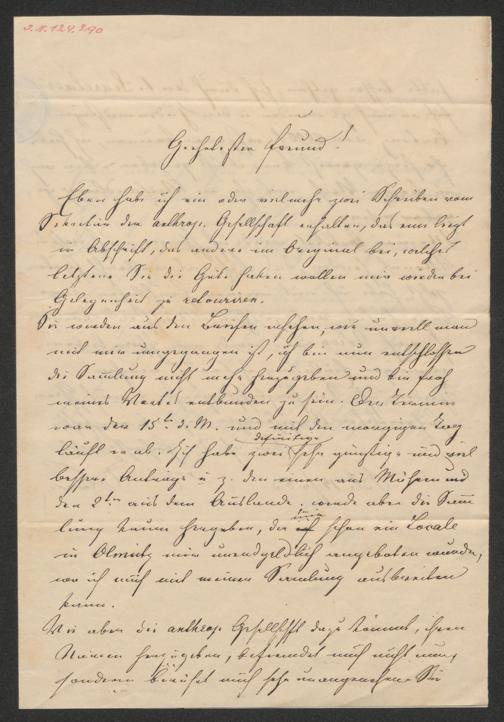 3.N.124.290
Geehrtester Freund!
Eben habe ich ein oder vielmehr zwei Schreiben vom
Sekretär der anthrop. Gesellschaft erhalten, das eine liegt
in Abschrift, das andere im Original bei, welches
letztere Sie die Güte haben wollen mir wieder bei
Gelegenheit zu retourniren.
Sie werden aus den Briefen ersehen, wie man
mit mir umgegangen ist, ich bin nun entschlossen
die Samlung nicht mehr herzugeben und bin froh
meines Wortes entbunden zu sein. Der Termin
war der 15te d. M. und mit dem morgigen Tag
läuft er ab. Ich habe zwei definitive sehr günstige und viel
bessere Anträge u. z. den einen aus Mähren und
den 2ten aus dem Auslande, werde aber die Sam
lung kaum hergeben, da mir schon ein Locale
in Olmütz mir unendgeldlich angeboten wurde,
wo ich mich mit meiner Samlung ausbreiten
kann.
Wie aber die anthrop. Gesellschft dazu kommt, ihren
Namen herzugeben, befremdet mich nicht nur,
sondern berührt mich sehr unangenehm. Sie